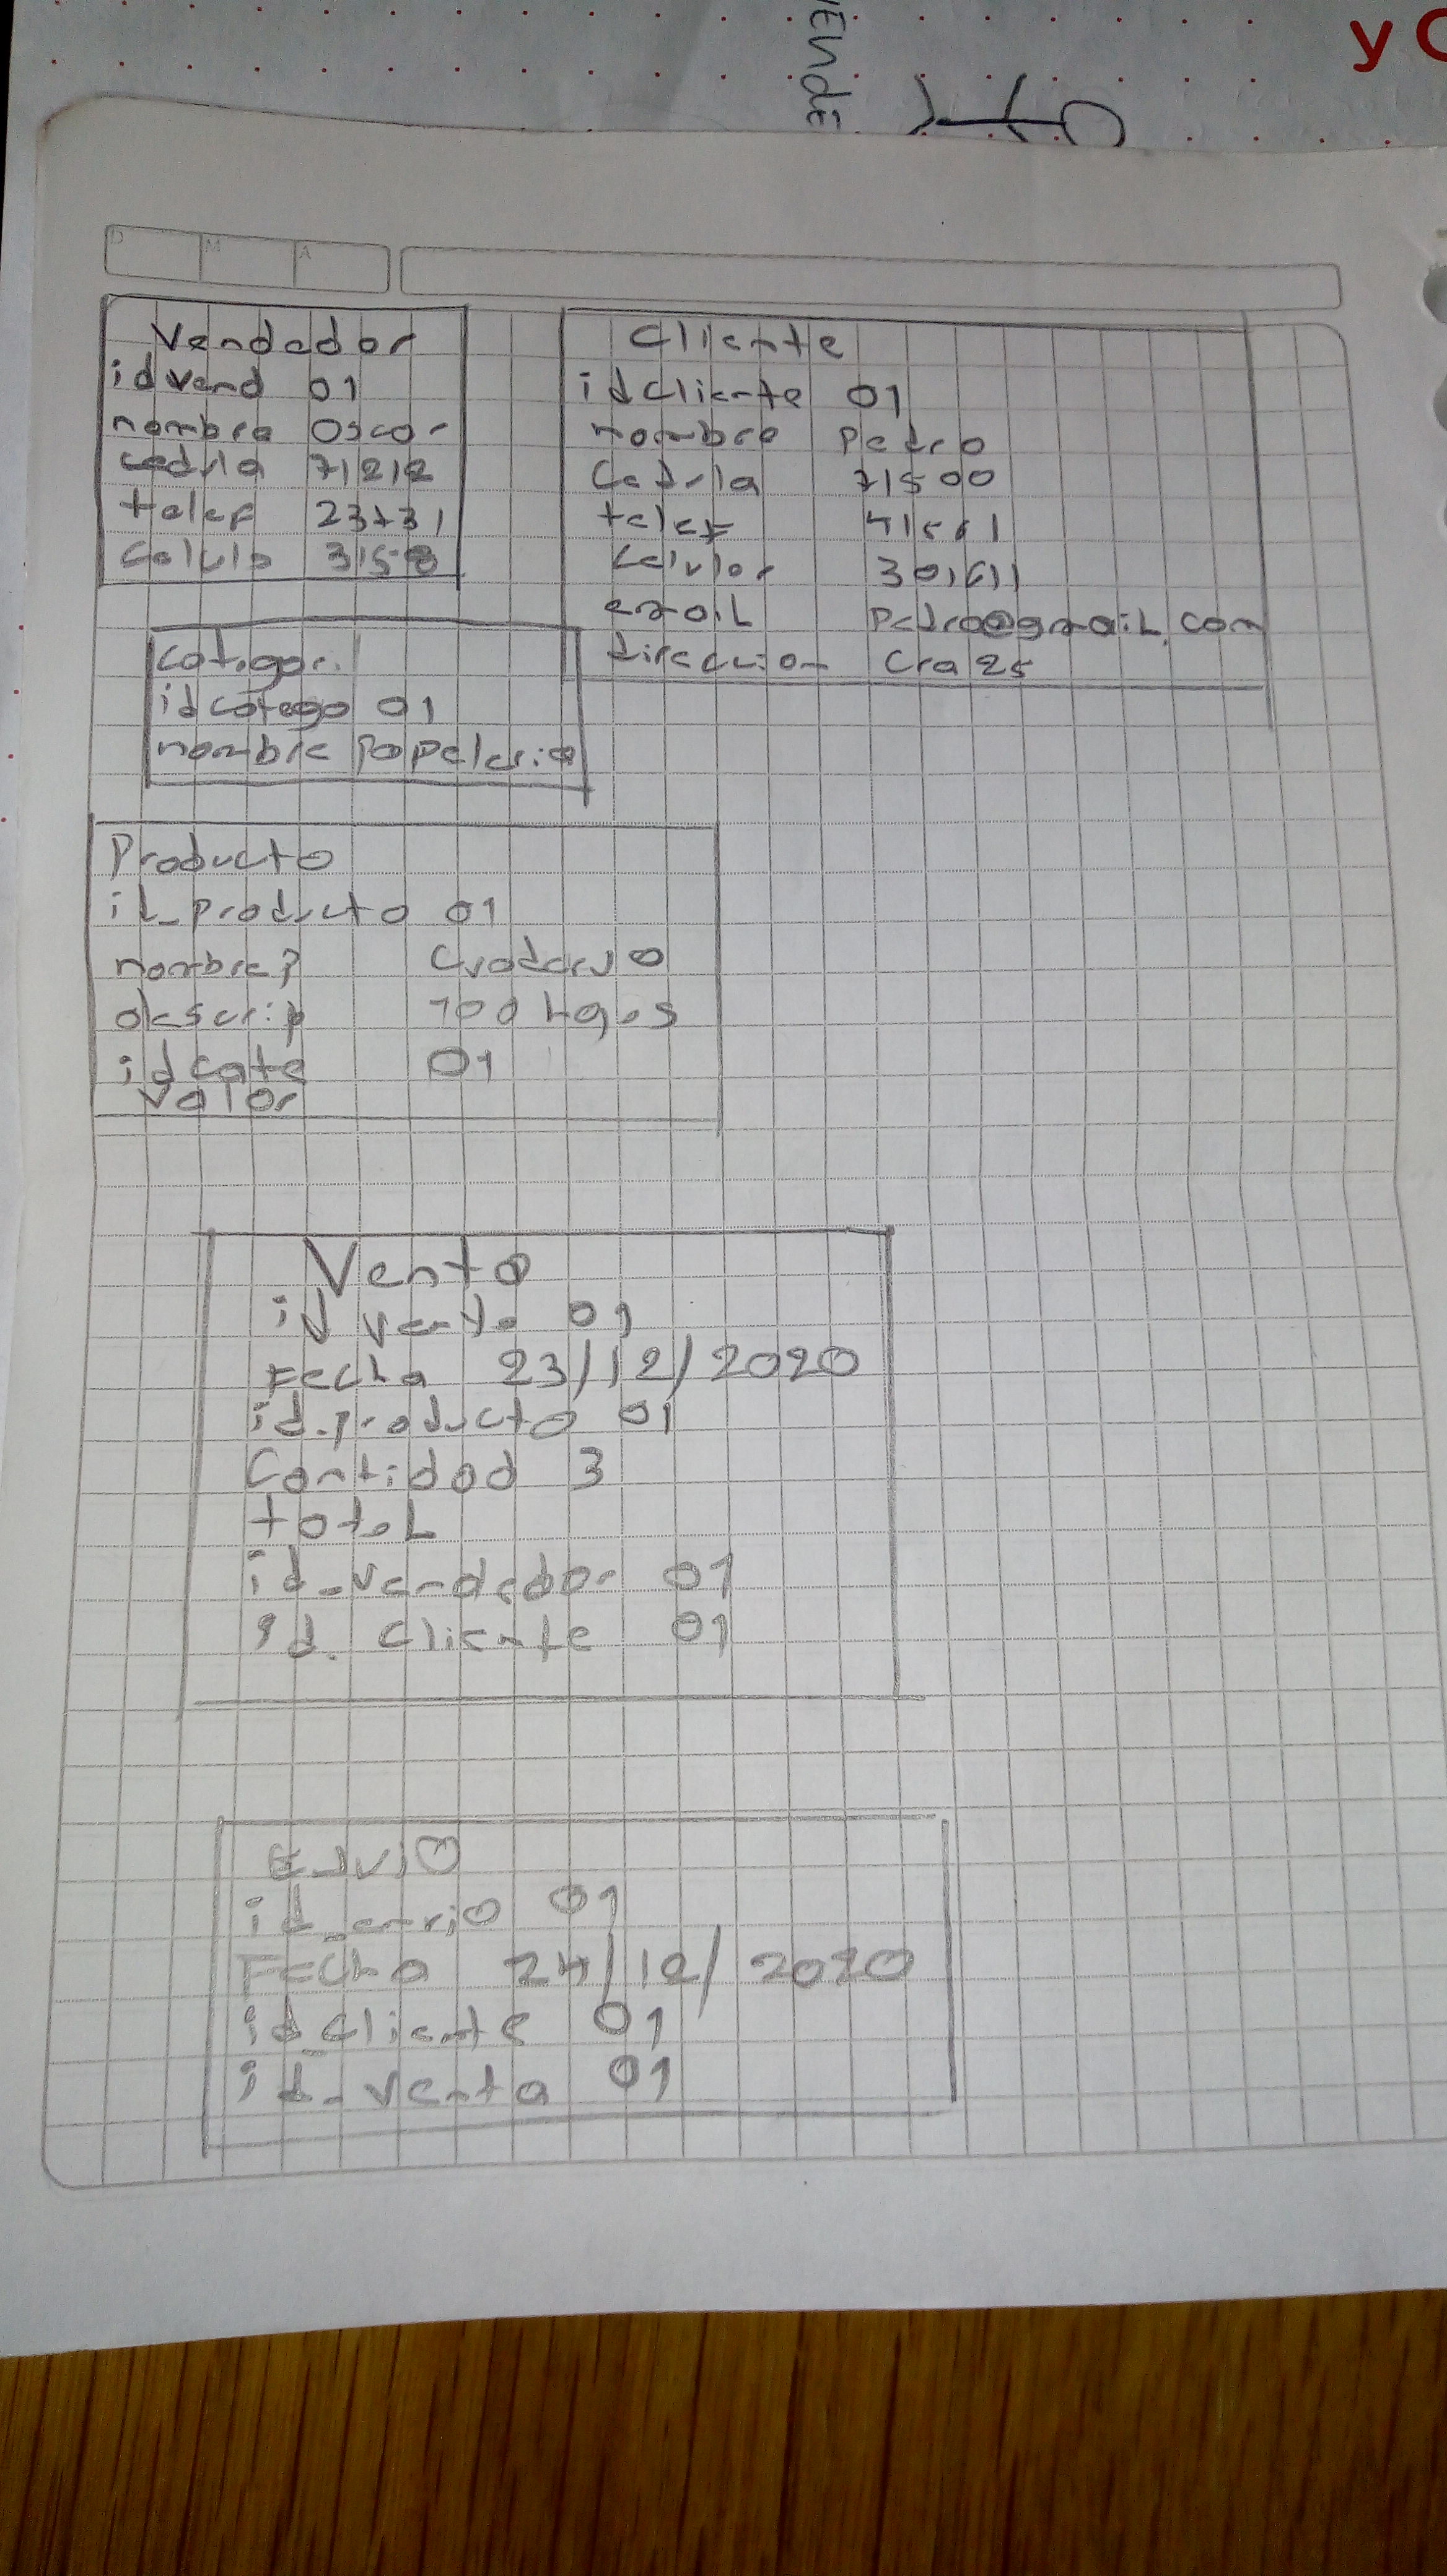 yC
VENDE
D M A
Vendedor
idvend 01
nombre Oscar
cedula 71212
telef 23731
celula 3158
Cliente
idcliente 01
nombre Pedro
Cedula 71500
telef
celular
email Pedro@gmail.com
direccion Cra 25
Categori
idcatego 01
nombre Papeleria
Producto
id_producto 01
nombre? Cuaderno
descrip 100 hojas
idcate 01
valor
Venta
id venta 01
Fecha 23/12/2020
id.producto 01
Cantidad 3
total
id_vendedor 01
id. cliente 01
Envio
id_envio 01
Fecha 24/12/2020
id_cliente 01
id_venta 01